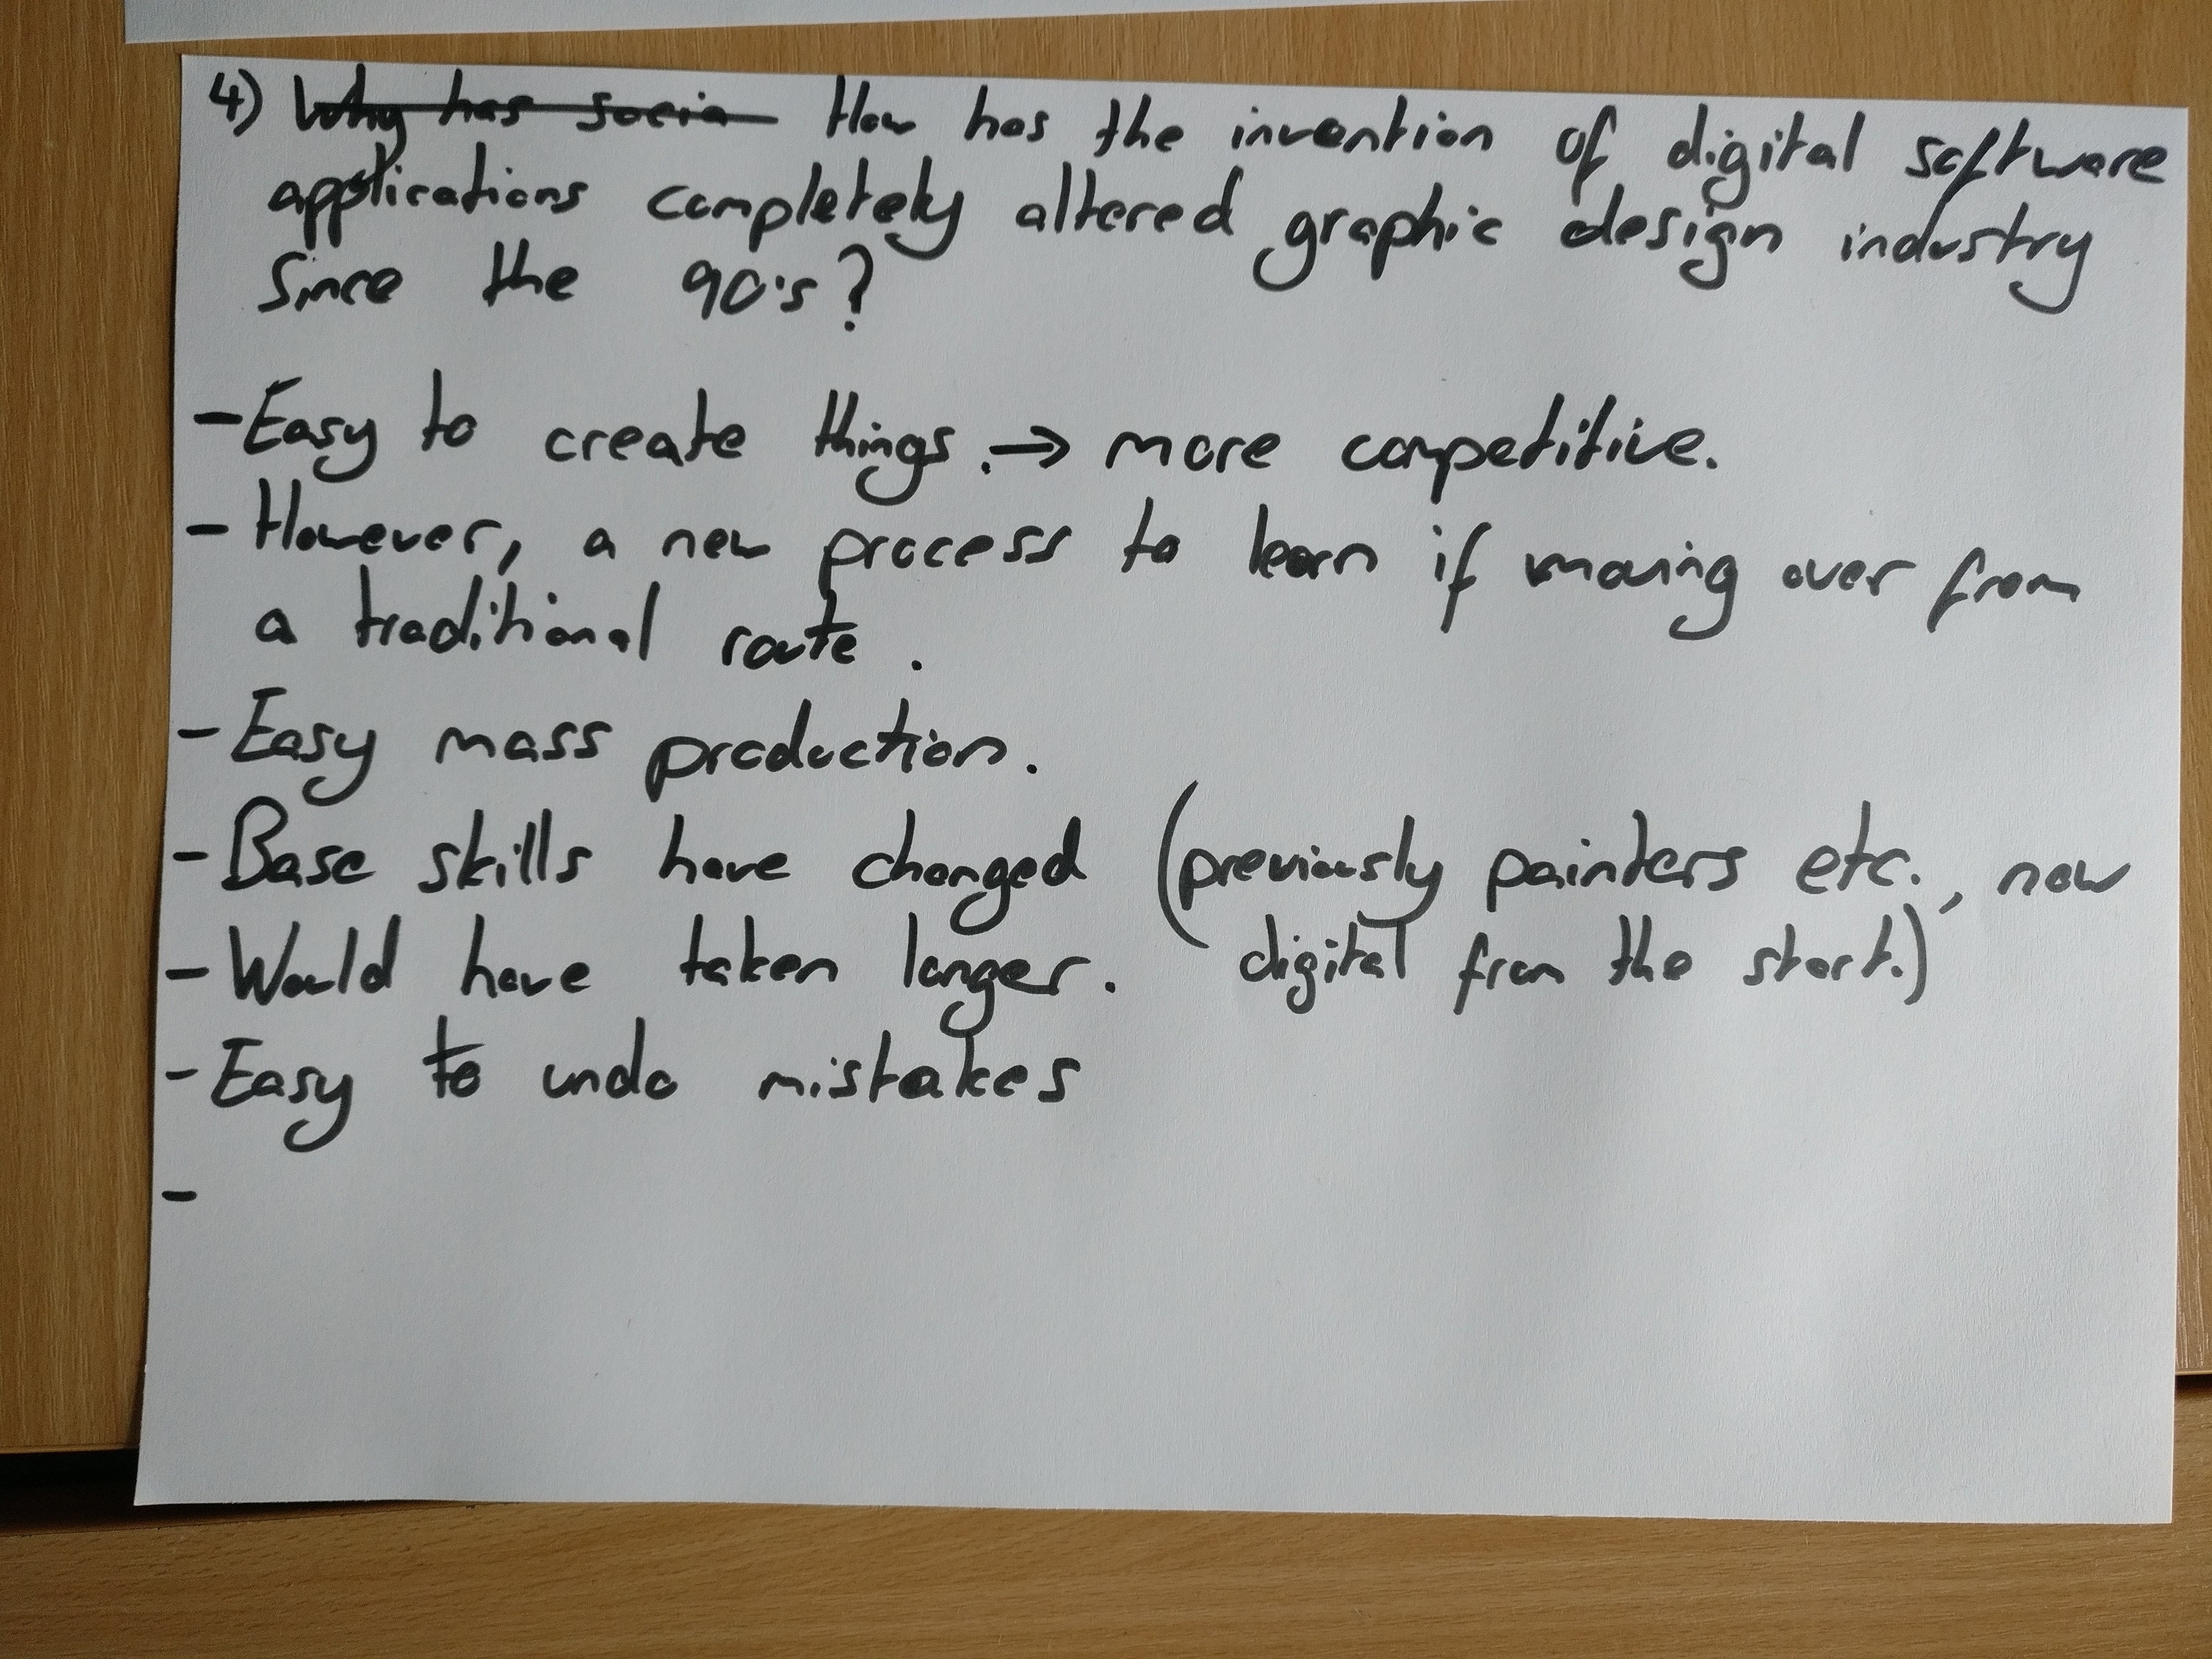 4) Why has socia How has the invention of digital software
applications completely altered graphic design industry
Since the 90's?
- Easy to create things. → more competitive.
- However, a new process to learn if moving over from
a traditional route.
- Easy mass production.
- Base skills have changed (previously painters etc., now
digital from the start.)
- Would have taken longer.
- Easy to undo mistakes
-